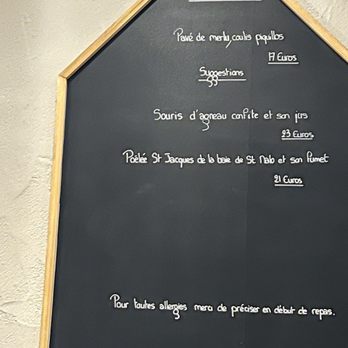 Pavé de merlu, coulis piquillos
17 Euros
Suggestions
Souris d'agneau confite et son jus
23 Euros
Poêlée St Jacques de la baie de St Malo et son Fumet
21 Euros
Pour toutes allergies merci de préciser en début de repas.